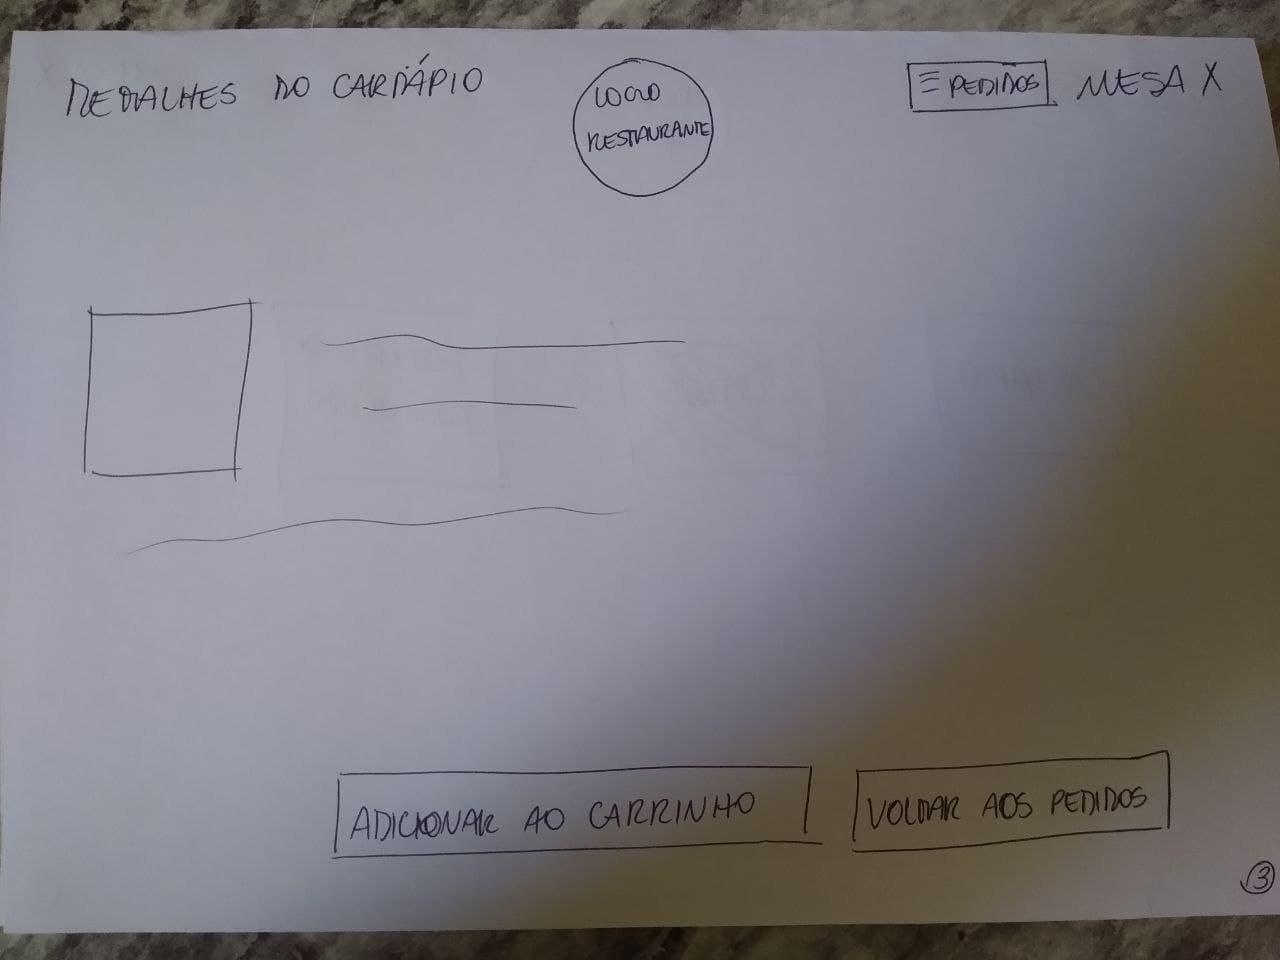 DETALHES DO CARDÁPIO
LOGO
RESTAURANTE
PEDIDOS
MESA X
ADICIONAR AO CARRINHO
VOLTAR AOS PEDIDOS
3